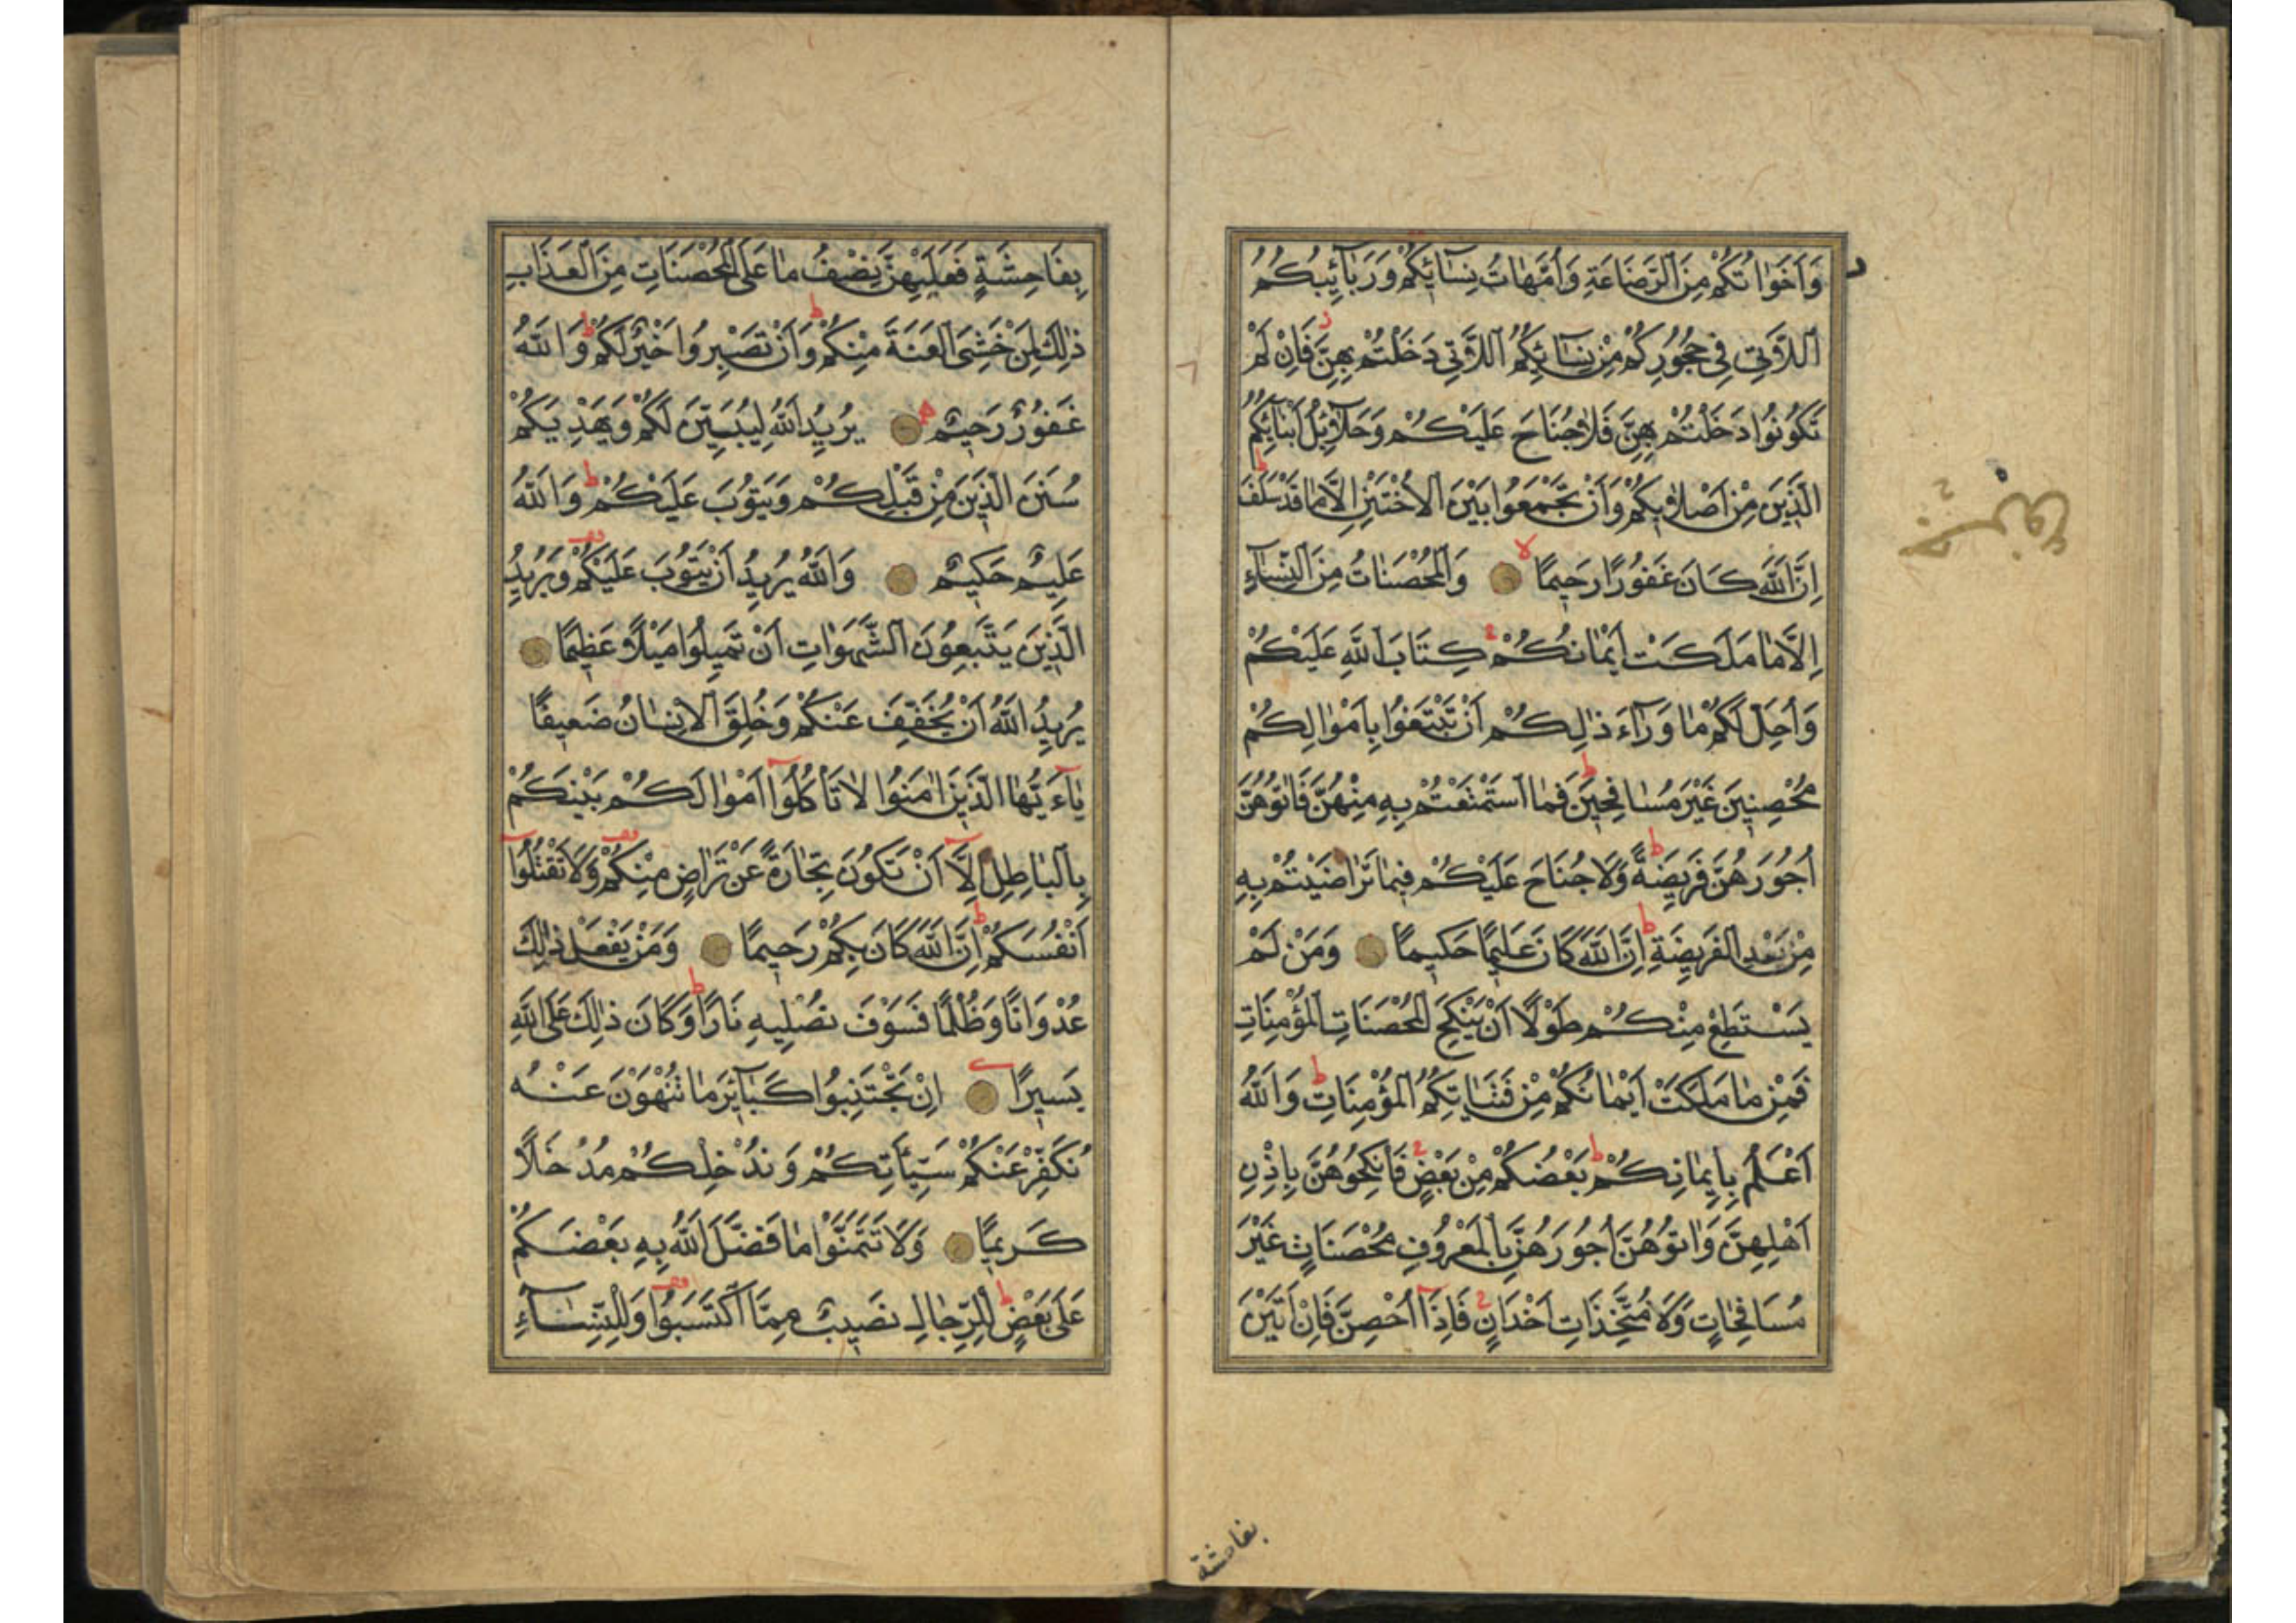 وَاَخَوَاتُكُمْ مِنَ الرَّضَاعَةِ وَاُمَّهَاتُ نِسَآئِكُمْ وَرَبَآئِبُكُمُ
اللّٰاتِى فِى حُجُورِكُمْ مِنْ نِسَآئِكُمُ اللّٰاتِى دَخَلْتُمْ بِهِنَّ فَاِنْ لَمْ
تَكُونُوا دَخَلْتُمْ بِهِنَّ فَلَا جُنَاحَ عَلَيْكُمْ وَحَلَآئِلُ اَبْنَآئِكُمُ
الَّذِينَ مِنْ اَصْلَابِكُمْ وَاَنْ تَجْمَعُوا بَيْنَ الْاُخْتَيْنِ اِلَّا مَا قَدْ سَلَفَ
اِنَّ اللّٰهَ كَانَ غَفُورًا رَحِيمًا وَالْمُحْصَنَاتُ مِنَ النِّسَآءِ
اِلَّا مَا مَلَكَتْ اَيْمَانُكُمْ كِتَابَ اللّٰهِ عَلَيْكُمْ
وَاُحِلَّ لَكُمْ مَا وَرَآءَ ذٰلِكُمْ اَنْ تَبْتَغُوا بِاَمْوَالِكُمْ
مُحْصِنِينَ غَيْرَ مُسَافِحِينَ فَمَا اسْتَمْتَعْتُمْ بِهِ مِنْهُنَّ فَاٰتُوهُنَّ
اُجُورَهُنَّ فَرِيضَةً وَلَا جُنَاحَ عَلَيْكُمْ فِيمَا تَرَاضَيْتُمْ بِهِ
مِنْ بَعْدِ الْفَرِيضَةِ اِنَّ اللّٰهَ كَانَ عَلِيمًا حَكِيمًا وَمَنْ لَمْ
يَسْتَطِعْ مِنْكُمْ طَوْلًا اَنْ يَنْكِحَ الْمُحْصَنَاتِ الْمُؤْمِنَاتِ
فَمِنْ مَا مَلَكَتْ اَيْمَانُكُمْ مِنْ فَتَيَاتِكُمُ الْمُؤْمِنَاتِ وَاللّٰهُ
اَعْلَمُ بِاِيمَانِكُمْ بَعْضُكُمْ مِنْ بَعْضٍ فَانْكِحُوهُنَّ بِاِذْنِ
اَهْلِهِنَّ وَاٰتُوهُنَّ اُجُورَهُنَّ بِالْمَعْرُوفِ مُحْصَنَاتٍ غَيْرَ
مُسَافِحَاتٍ وَلَا مُتَّخِذَاتِ اَخْدَانٍ فَاِذَآ اُحْصِنَّ فَاِنْ اَتَيْنَ
بفاحشة
بِفَاحِشَةٍ فَعَلَيْهِنَّ نِصْفُ مَا عَلَى الْمُحْصَنَاتِ مِنَ الْعَذَابِ
ذٰلِكَ لِمَنْ خَشِىَ الْعَنَتَ مِنْكُمْ وَاَنْ تَصْبِرُوا خَيْرٌ لَكُمْ وَاللّٰهُ
غَفُورٌ رَحِيمٌ يُرِيدُ اللّٰهُ لِيُبَيِّنَ لَكُمْ وَيَهْدِيَكُمْ
سُنَنَ الَّذِينَ مِنْ قَبْلِكُمْ وَيَتُوبَ عَلَيْكُمْ وَاللّٰهُ
عَلِيمٌ حَكِيمٌ وَاللّٰهُ يُرِيدُ اَنْ يَتُوبَ عَلَيْكُمْ وَيُرِيدُ
الَّذِينَ يَتَّبِعُونَ الشَّهَوَاتِ اَنْ تَمِيلُوا مَيْلًا عَظِيمًا
يُرِيدُ اللّٰهُ اَنْ يُخَفِّفَ عَنْكُمْ وَخُلِقَ الْاِنْسَانُ ضَعِيفًا
يَآءَيُّهَا الَّذِينَ اٰمَنُوا لَا تَأْكُلُوٓا اَمْوَالَكُمْ بَيْنَكُمْ
بِالْبَاطِلِ اِلَّآ اَنْ تَكُونَ تِجَارَةً عَنْ تَرَاضٍ مِنْكُمْ وَلَا تَقْتُلُوٓا
اَنْفُسَكُمْ اِنَّ اللّٰهَ كَانَ بِكُمْ رَحِيمًا وَمَنْ يَفْعَلْ ذٰلِكَ
عُدْوَانًا وَظُلْمًا فَسَوْفَ نُصْلِيهِ نَارًا وَكَانَ ذٰلِكَ عَلَى اللّٰهِ
يَسِيرًا اِنْ تَجْتَنِبُوا كَبَآئِرَ مَا تُنْهَوْنَ عَنْهُ
نُكَفِّرْ عَنْكُمْ سَيِّئَاتِكُمْ وَنُدْخِلْكُمْ مُدْخَلًا
كَرِيمًا وَلَا تَتَمَنَّوْا مَا فَضَّلَ اللّٰهُ بِهِ بَعْضَكُمْ
عَلَى بَعْضٍ لِلرِّجَالِ نَصِيبٌ مِمَّا اكْتَسَبُوا وَلِلنِّسَآءِ